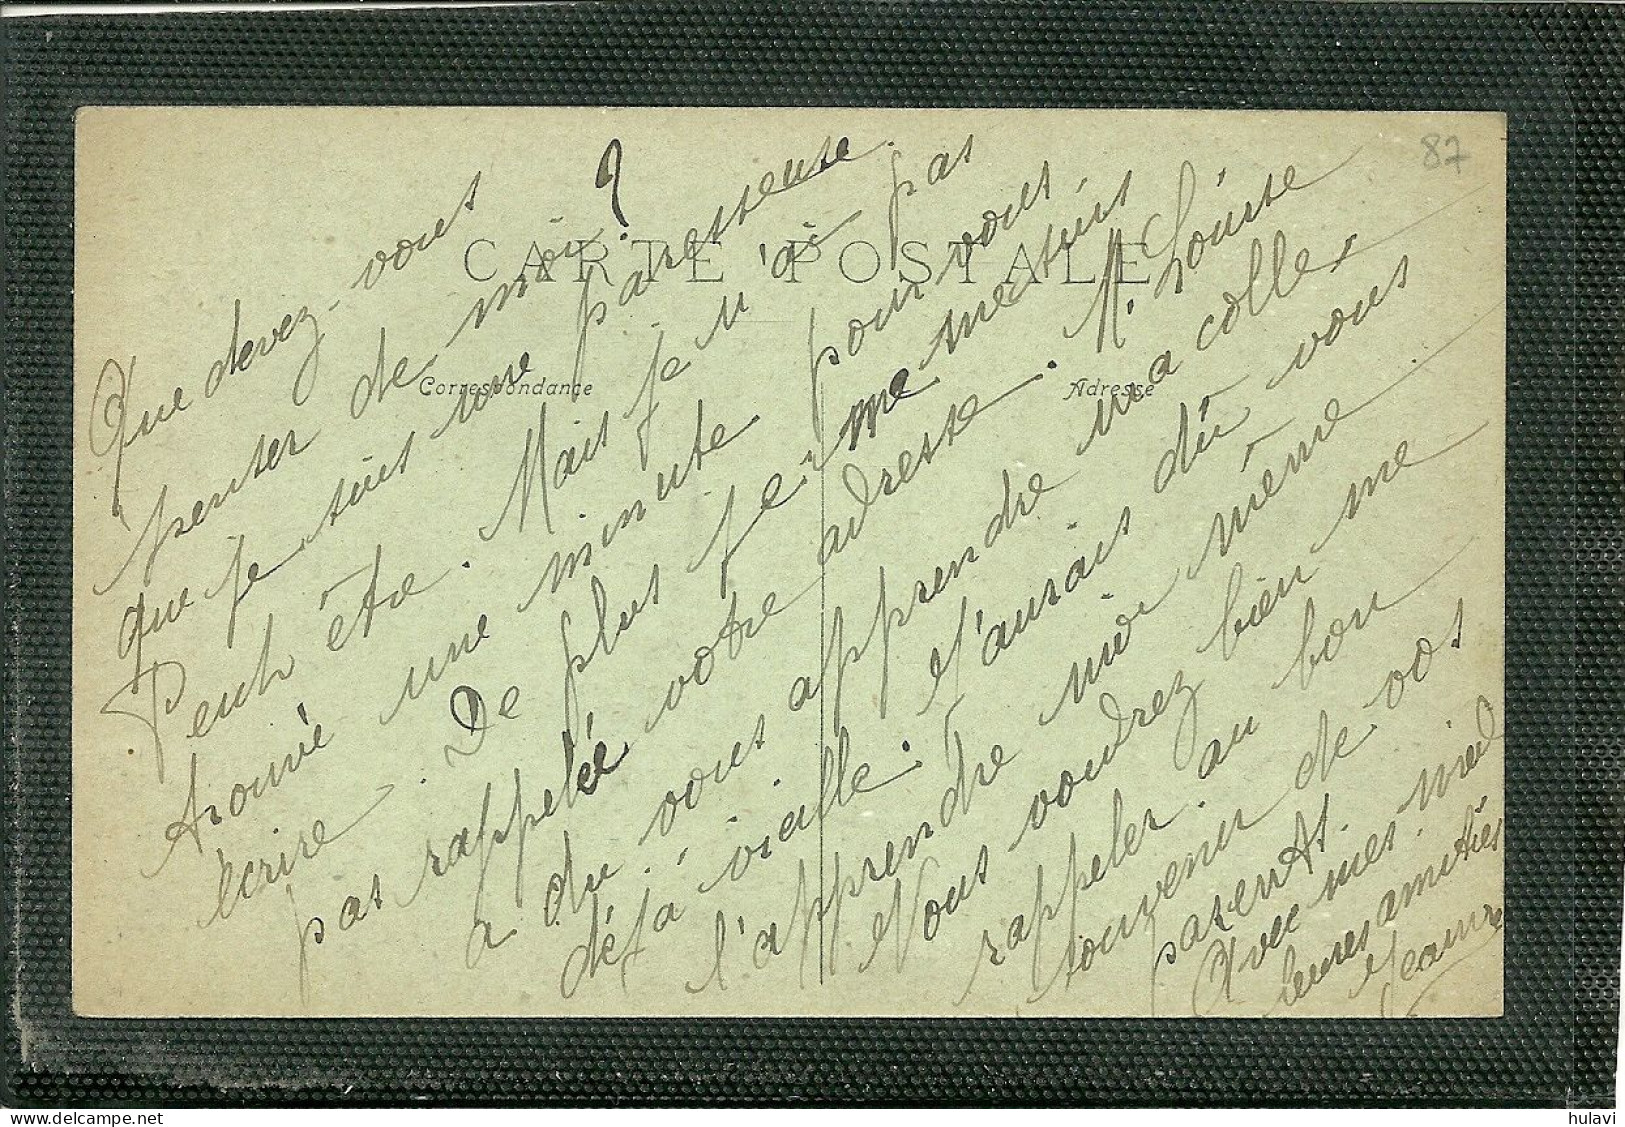 CARTE POSTALE
Correspondance
Adresse
87
Que devez-vous
penser de moi ?
que je suis une paresseuse.
Peut être. Mais je n'ai pas
trouvé une minute pour vous
écrire. De plus je ne me suis
pas rappelée votre adresse. M. Louise
a du vous apprendre ma colle,
déjà vieille. J'aurais dû vous
l'apprendre moi même.
Vous voudrez bien me
rappeler au bon
souvenir de vos
parents.
Avec mes meil
leures amitiés
Jeanne
hulavi